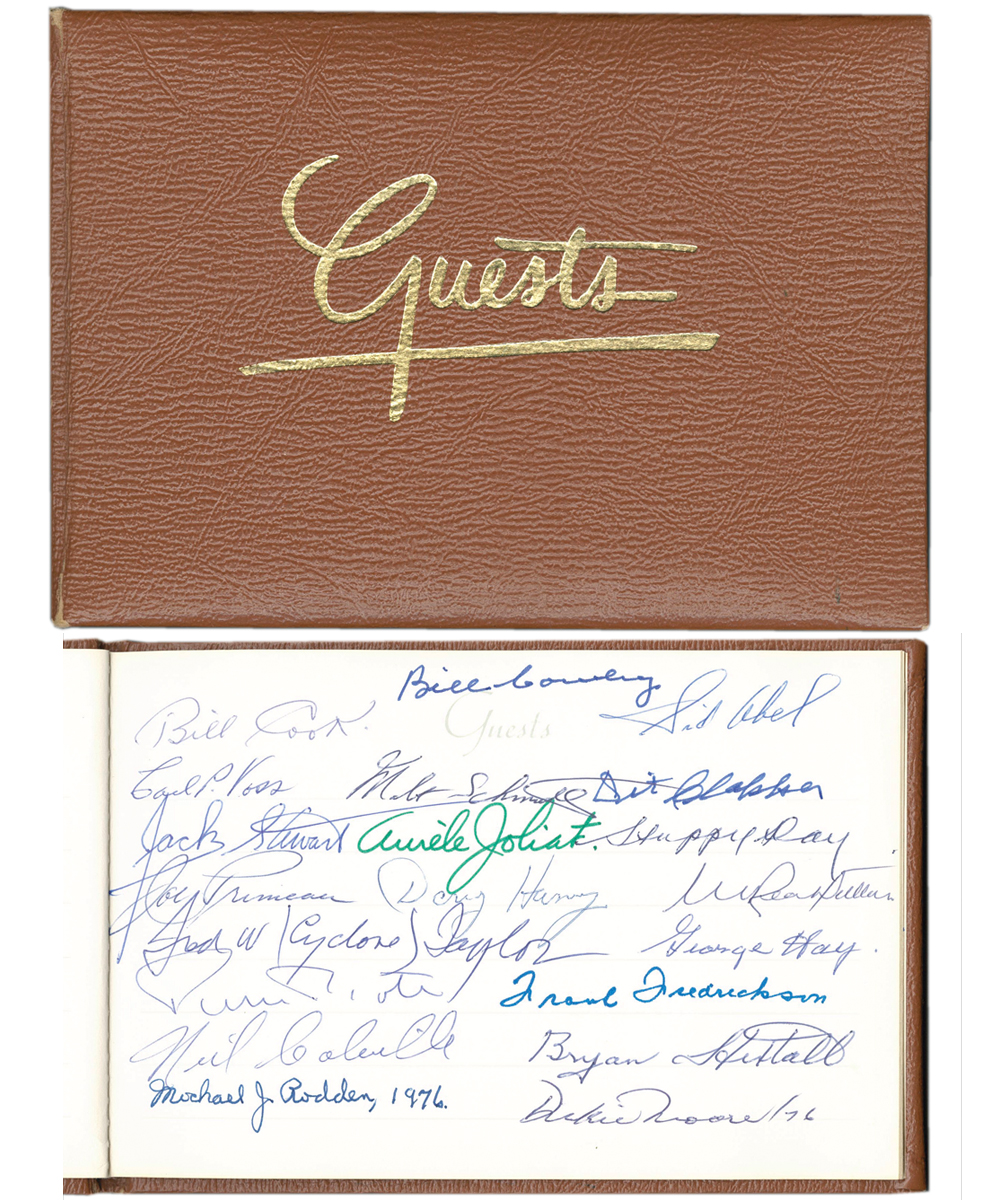 Guests
Bill Cowley
Guests
Bill Cook. Sid Abel
Carl P. Voss Milt Schmidt Dit Clapper
Jack Stewart Aurèle Joliat. Happy Day
Joy Primeau Doug Harvey
Fred W (Cyclone) Taylor George Hay.
Frank Fredrickson
Neil Colville Bryan Hextall
Michael J. Rodden, 1976.
Dickie Moore /76